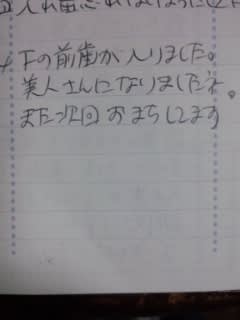 入れ忘れのないように
下の前歯が入りました。
美人さんになりましたネ。
また次回おまちしてます